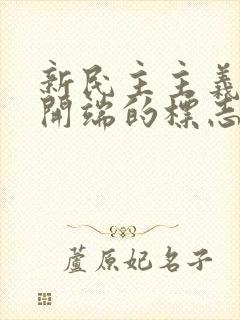 新民主主義
開端的標志
蘆原妃名子